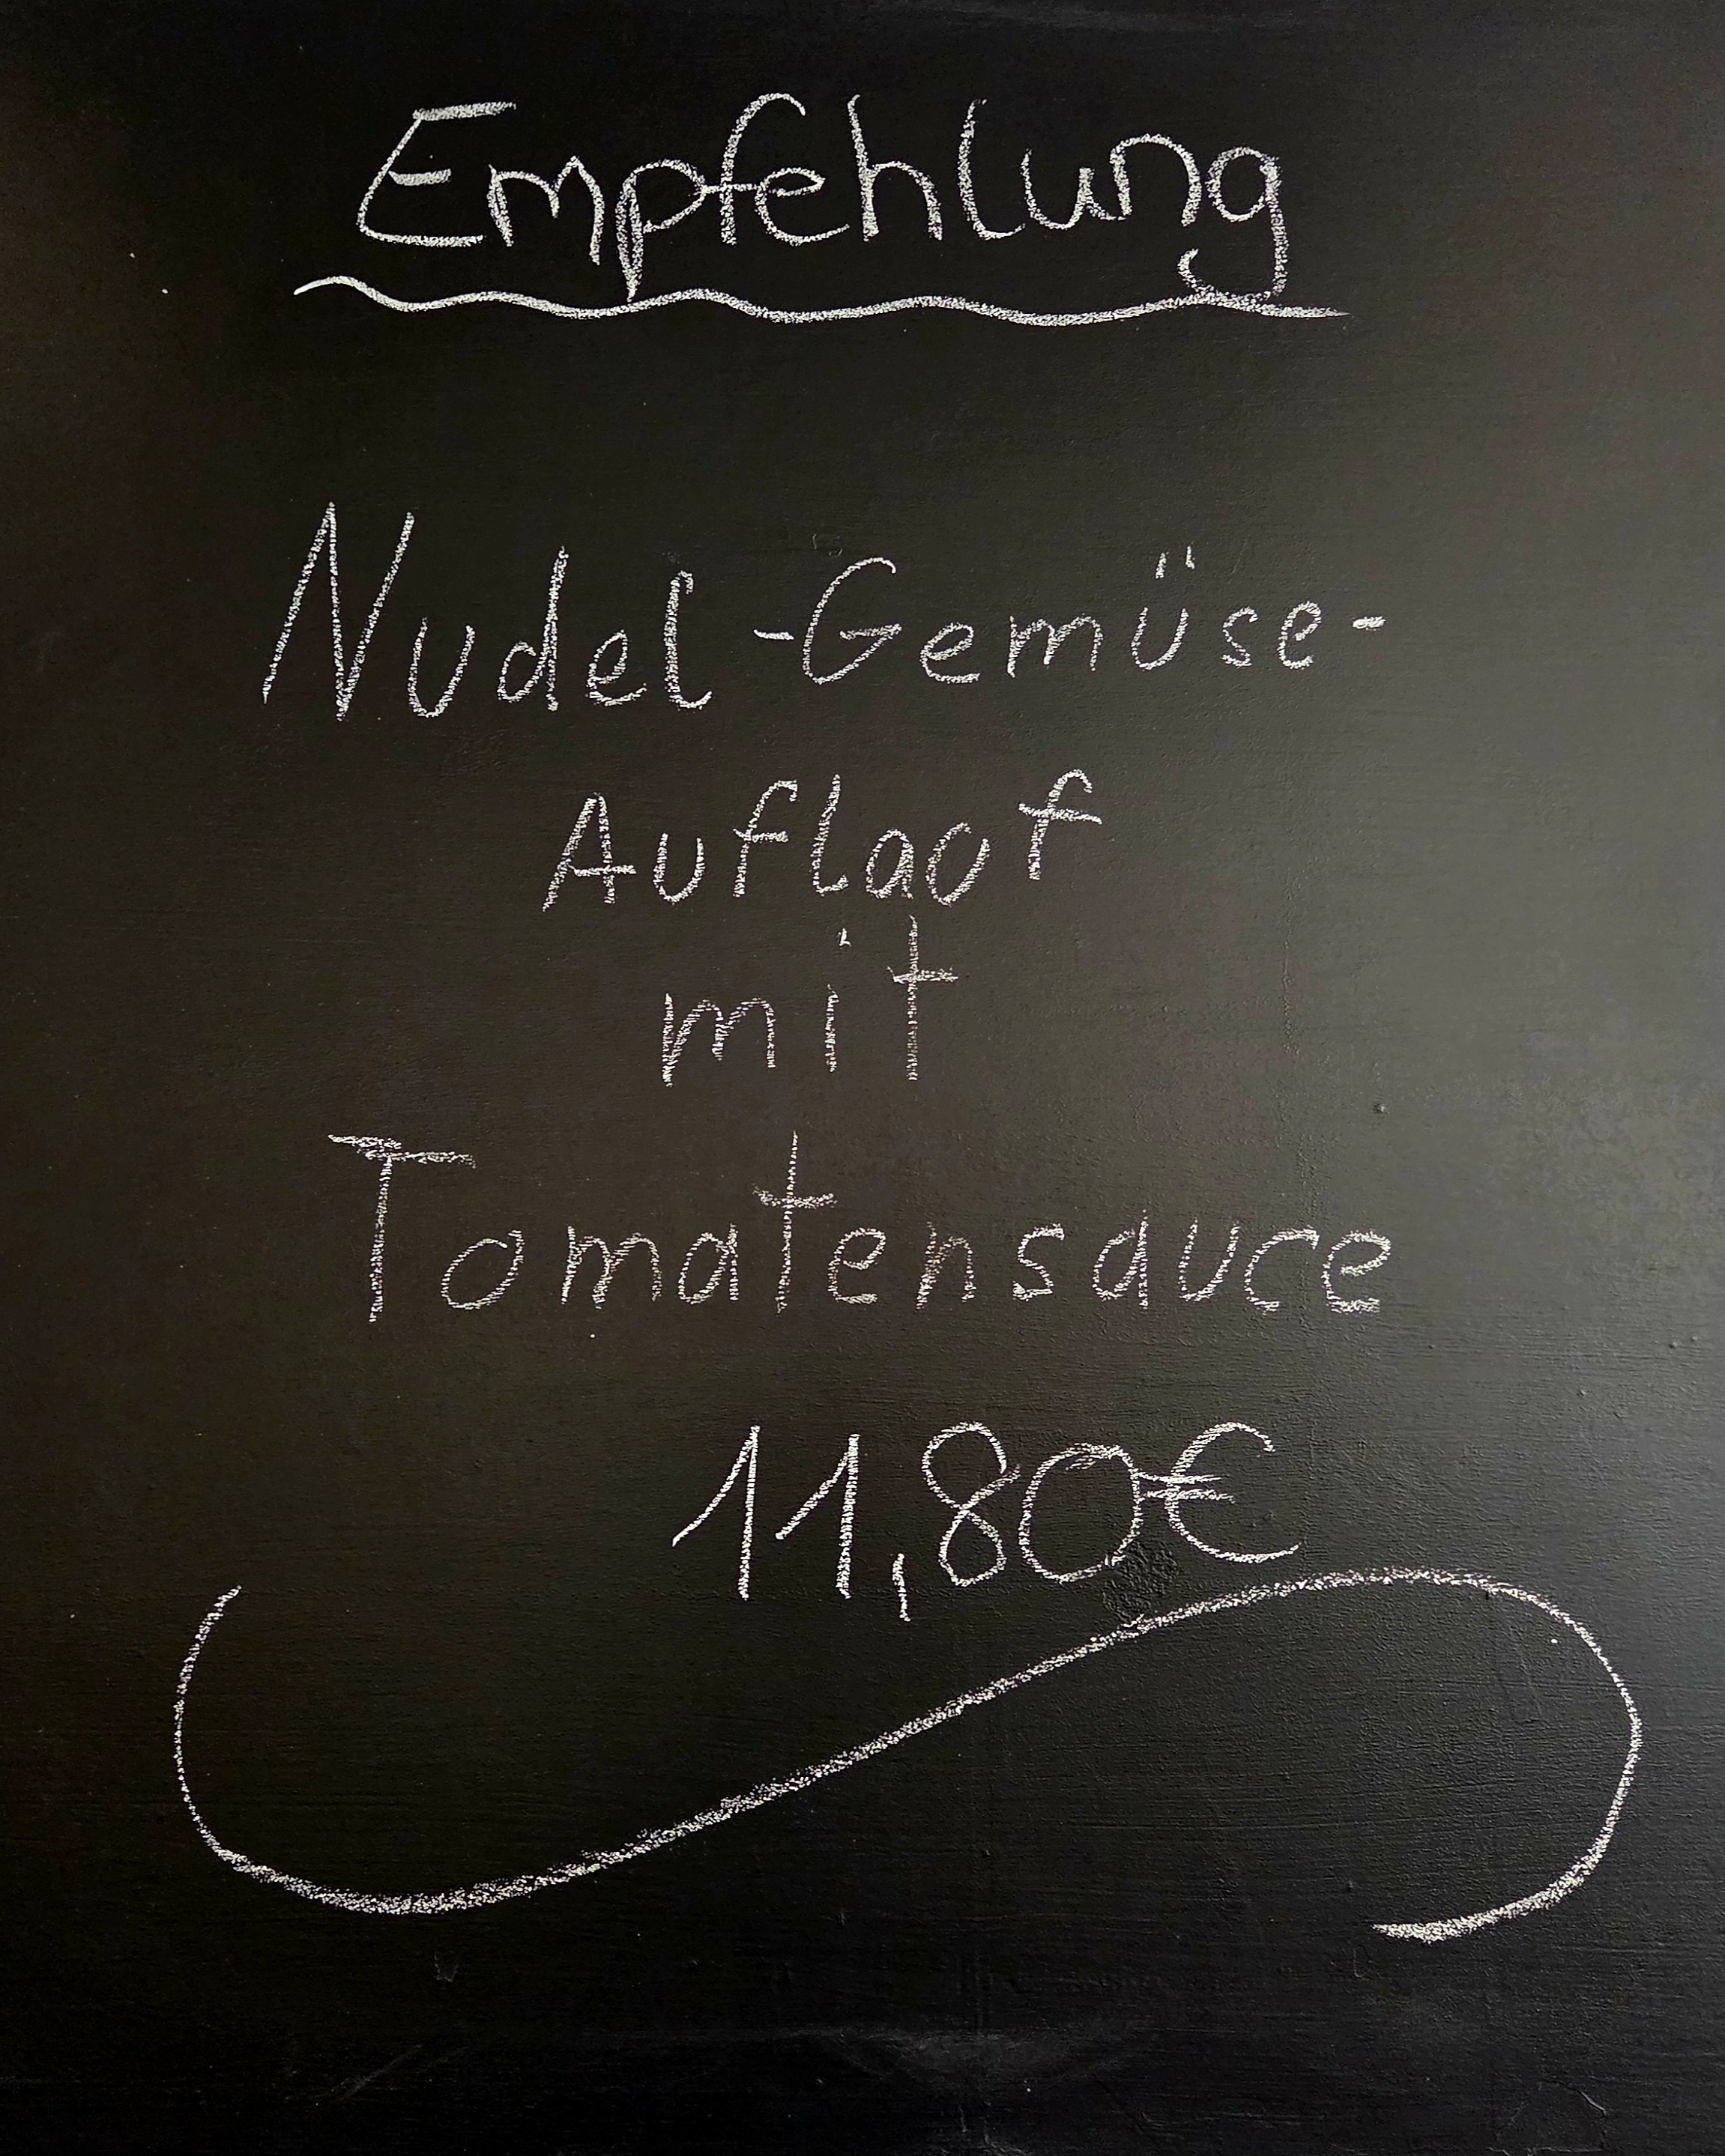 Empfehlung
Nudel-Gemüse-
Auflauf
mit
Tomatensauce
11,80€